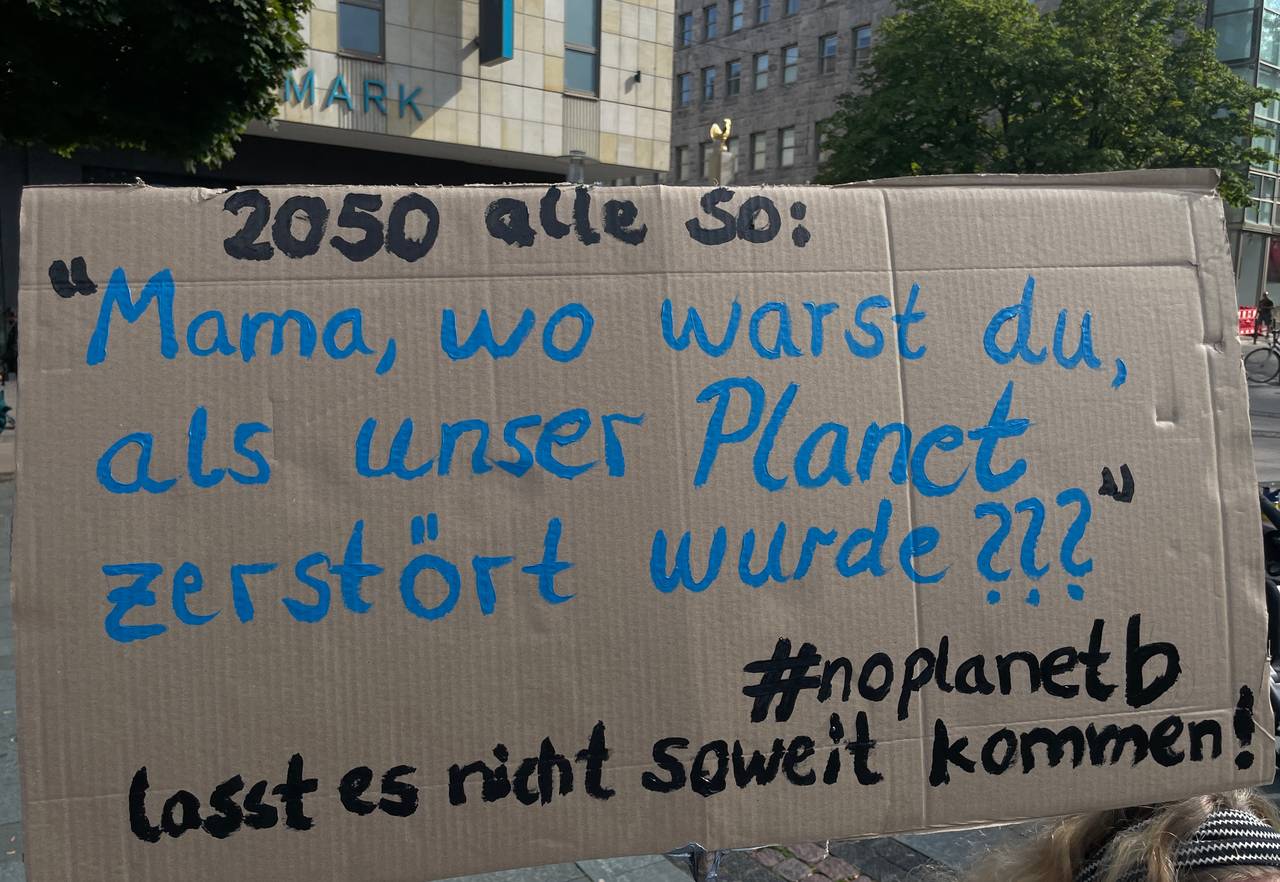 MARK
2050 alle so:
"Mama, wo warst du,
als unser Planet
zerstört wurde???"
#noplanetb
lasst es nicht soweit kommen!